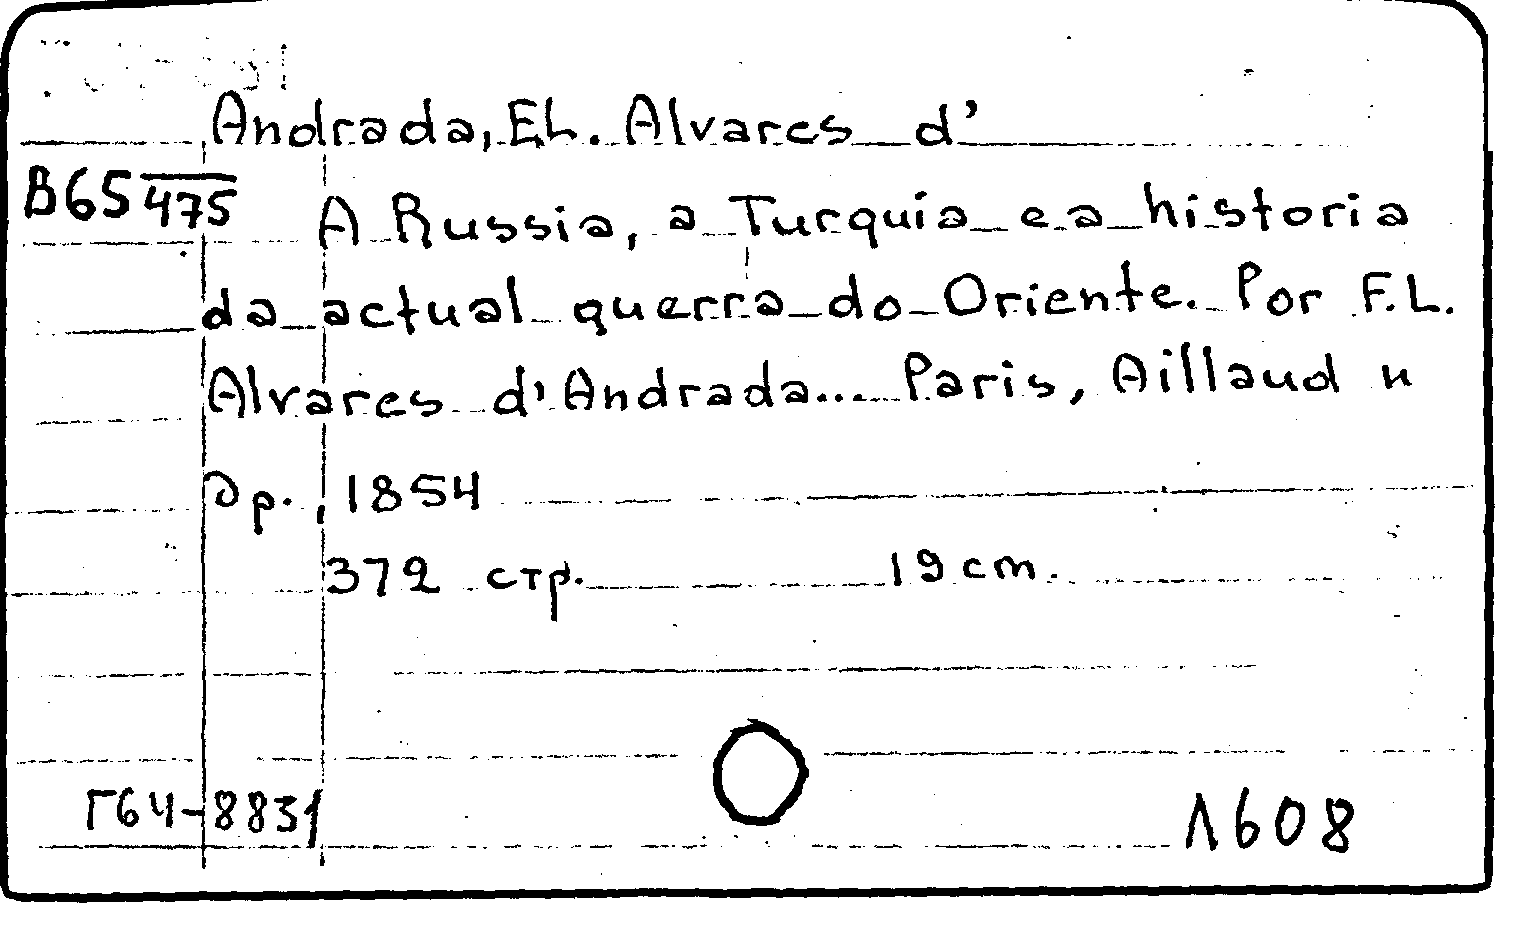 Andrada, F.L. Alvares d'
В65 475
A Russia, a Turquia e a historia
da actual guerra do Oriente. Por F.L.
Alvares d'Andrada... Paris, Aillaud и
др., 1854
372 стр. 19 cm.
Г64-8831
Л608